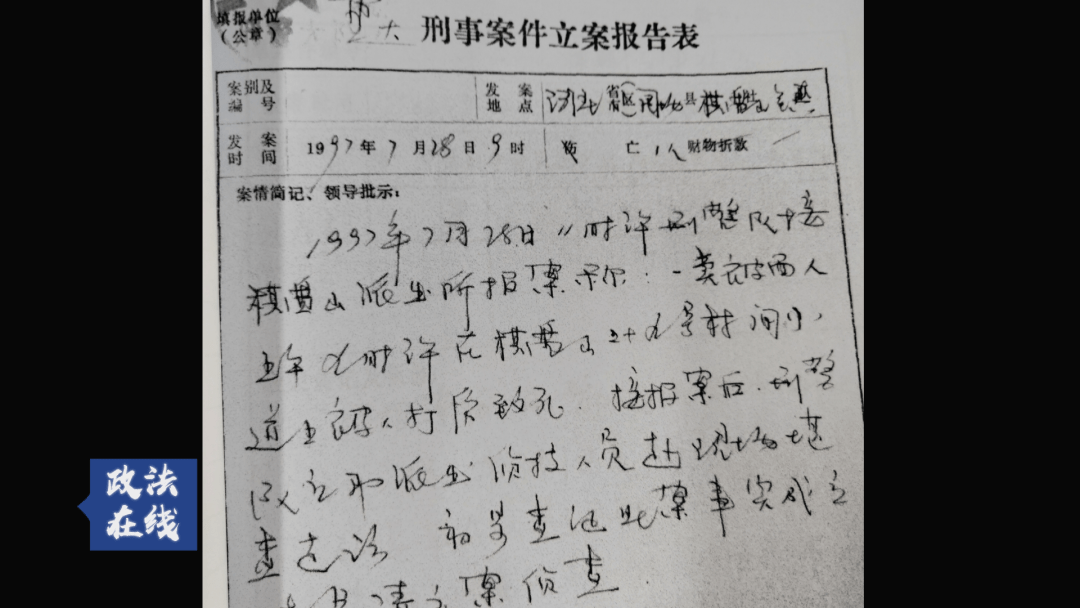 填报单位
(公章)
刑事案件立案报告表
案别及
编 号
发 案
地 点
河北 省 区 围场 县 棋盘山
发 案
时 间
1997年7月28日9时
亡 1人 财物折款
案情简记、领导批示:
1997年7月28日11时许刑警队接
棋盘山派出所报案称:一卖衣皮西人
上午九时许在棋盘山二十九号村间小
道上被人打伤致死.接报案后.刑警
队立即派出侦技人员赴现场堪
查走访 初步查记此案事实成立
请立案侦查
政法
在线